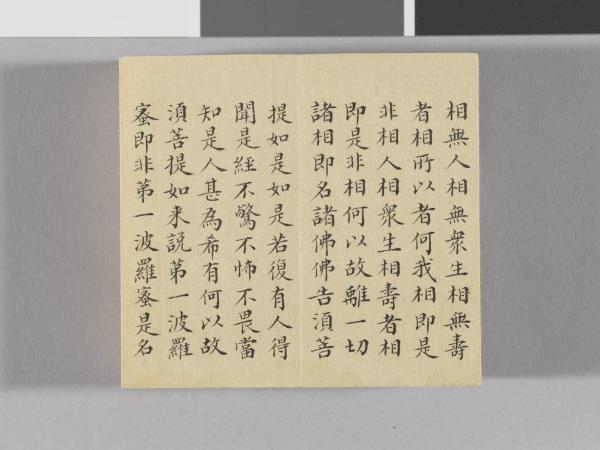 相無人相無衆生相無壽
者相所以者何我相即是
非相人相衆生相壽者相
即是非相何以故離一切
諸相即名諸佛佛告須菩
提如是如是若復有人得
聞是經不驚不怖不畏當
知是人甚為希有何以故
須菩提如来說第一波羅
蜜即非第一波羅蜜是名